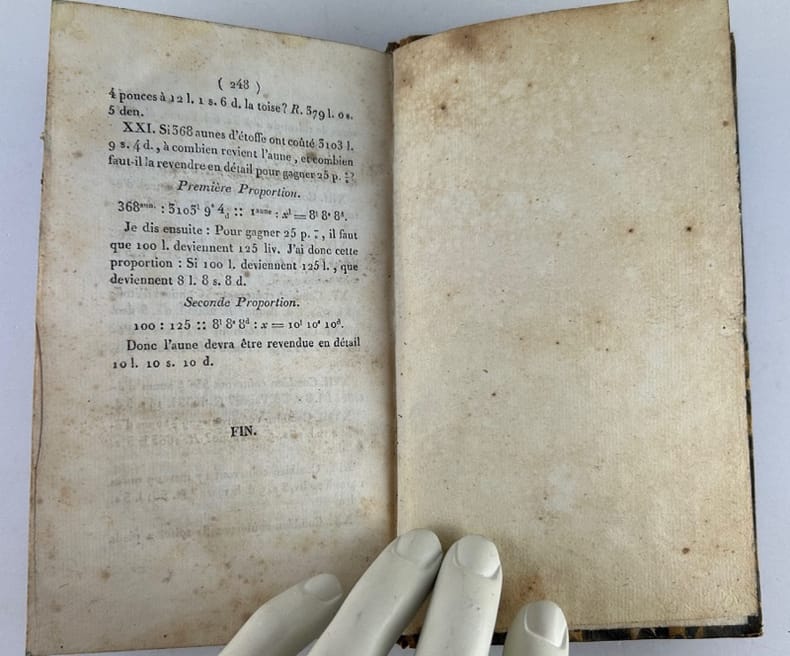 ( 248 )
4 pouces à 12 l. 1 s. 6 d. la toise? R. 379 l. 0 s.
5 den.
XXI. Si 368 aunes d'étoffe ont coûté 3103 l.
9 s. 4 d., à combien revient l'aune, et combien
faut-il la revendre en détail pour gagner 25 p. %?
Première Proportion.
368aun. : 3103l 9s 4d :: 1aune : xl = 8l 8s 8d.
Je dis ensuite : Pour gagner 25 p. %, il faut
que 100 l. deviennent 125 liv. J'ai donc cette
proportion : Si 100 l. deviennent 125 l., que
deviennent 8 l. 8 s. 8 d.
Seconde Proportion.
100 : 125 :: 8l 8s 8d : x = 10l 10s 10d.
Donc l'aune devra être revendue en détail
10 l. 10 s. 10 d.
FIN.